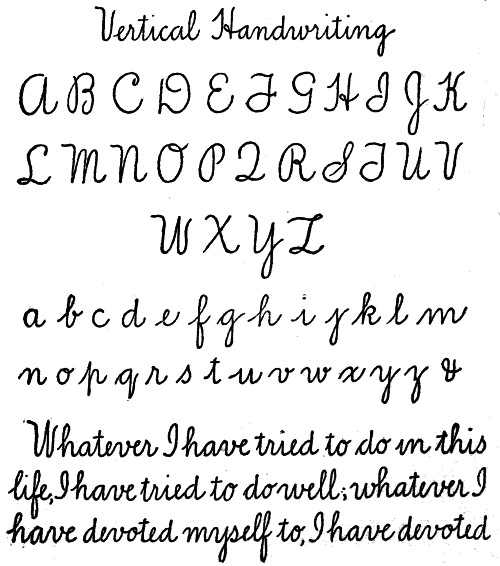 Vertical Handwriting
A B C D E F G H I J K
L M N O P Q R S T U V
W X Y Z
a b c d e f g h i j k l m
n o p q r s t u v w x y z &
Whatever I have tried to do in this
life, I have tried to do well; whatever I
have devoted myself to, I have devoted